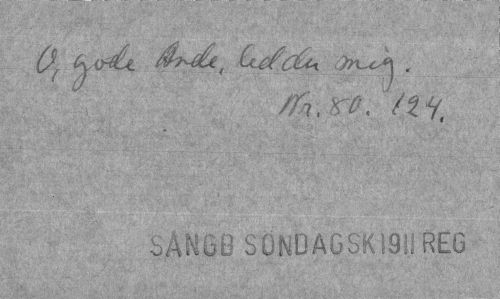 O, gode Ande, led du mig.
Nr. 80. 124.
SÅNGB SÖNDAGSK 1911 REG